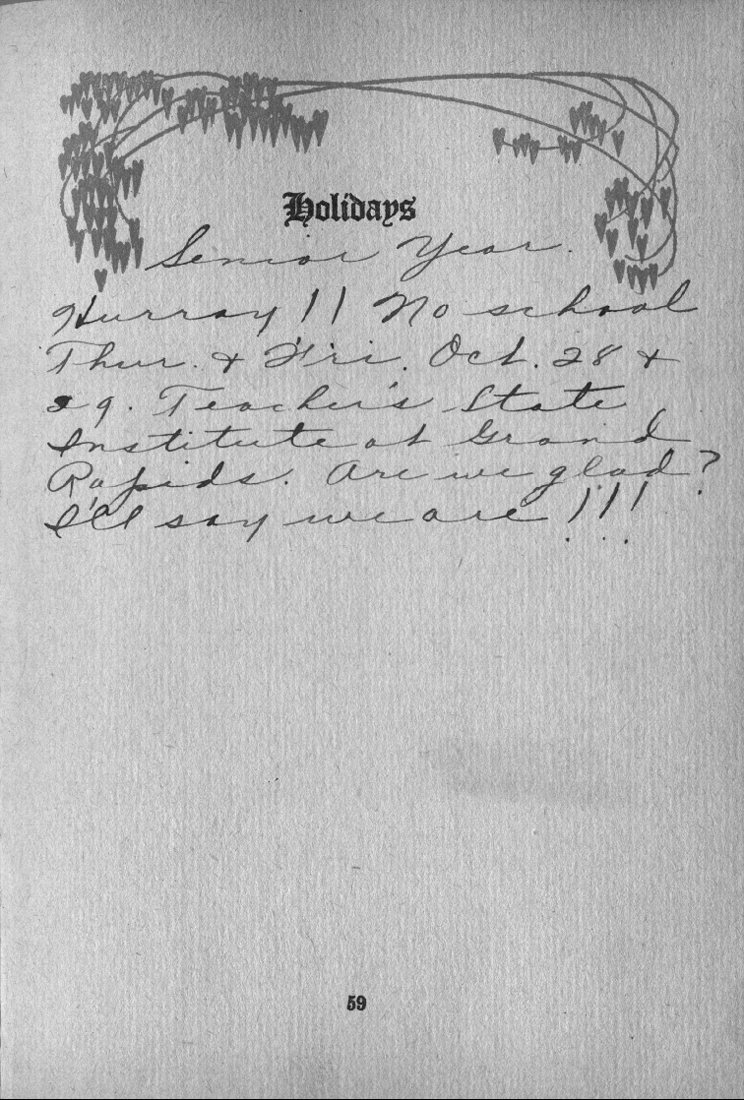 Holidays
Senior Year.
Hurray !! No school
Thur. & Fri. Oct. 28 &
29. Teacher's State
Institute at Grand
Rapids. Are we glad?
I'll say we are !!!
59